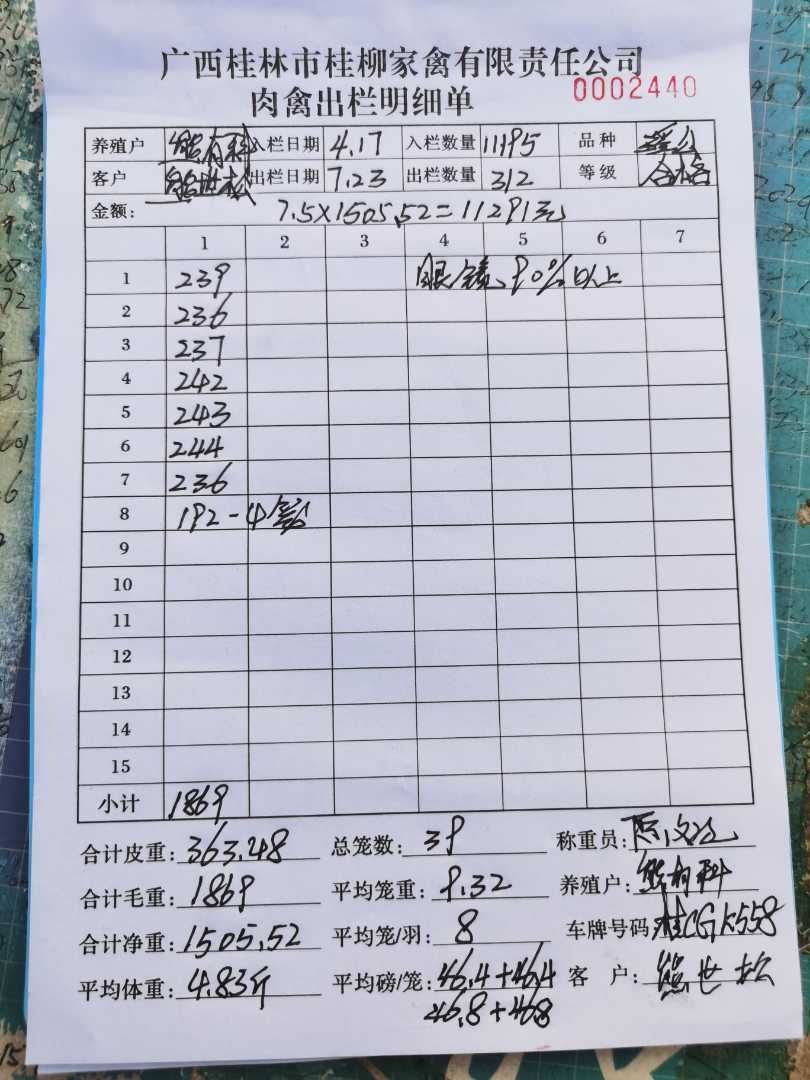 广西桂林市桂柳家禽有限责任公司
肉禽出栏明细单 0002440
养殖户 熊有科 入栏日期 4.17 入栏数量 11195 品种
客户 熊世松 出栏日期 7.23 出栏数量 312 等级 合格
金额: 7.5×1505.52=11291元
1 2 3 4 5 6 7
1 239 眼镜、90%以上
2 236
3 237
4 242
5 243
6 244
7 236
8 192-4笼
9
10
11
12
13
14
15
小计 1869
合计皮重: 363.48 总笼数: 39 称重员:
合计毛重: 1869 平均笼重: 9.32 养殖户: 熊有科
合计净重: 1505.52 平均笼/羽: 8 车牌号码 桂CGK558
平均体重: 4.83斤 平均磅/笼: 46.4+46.4 客 户: 熊世松
46.8+46.8